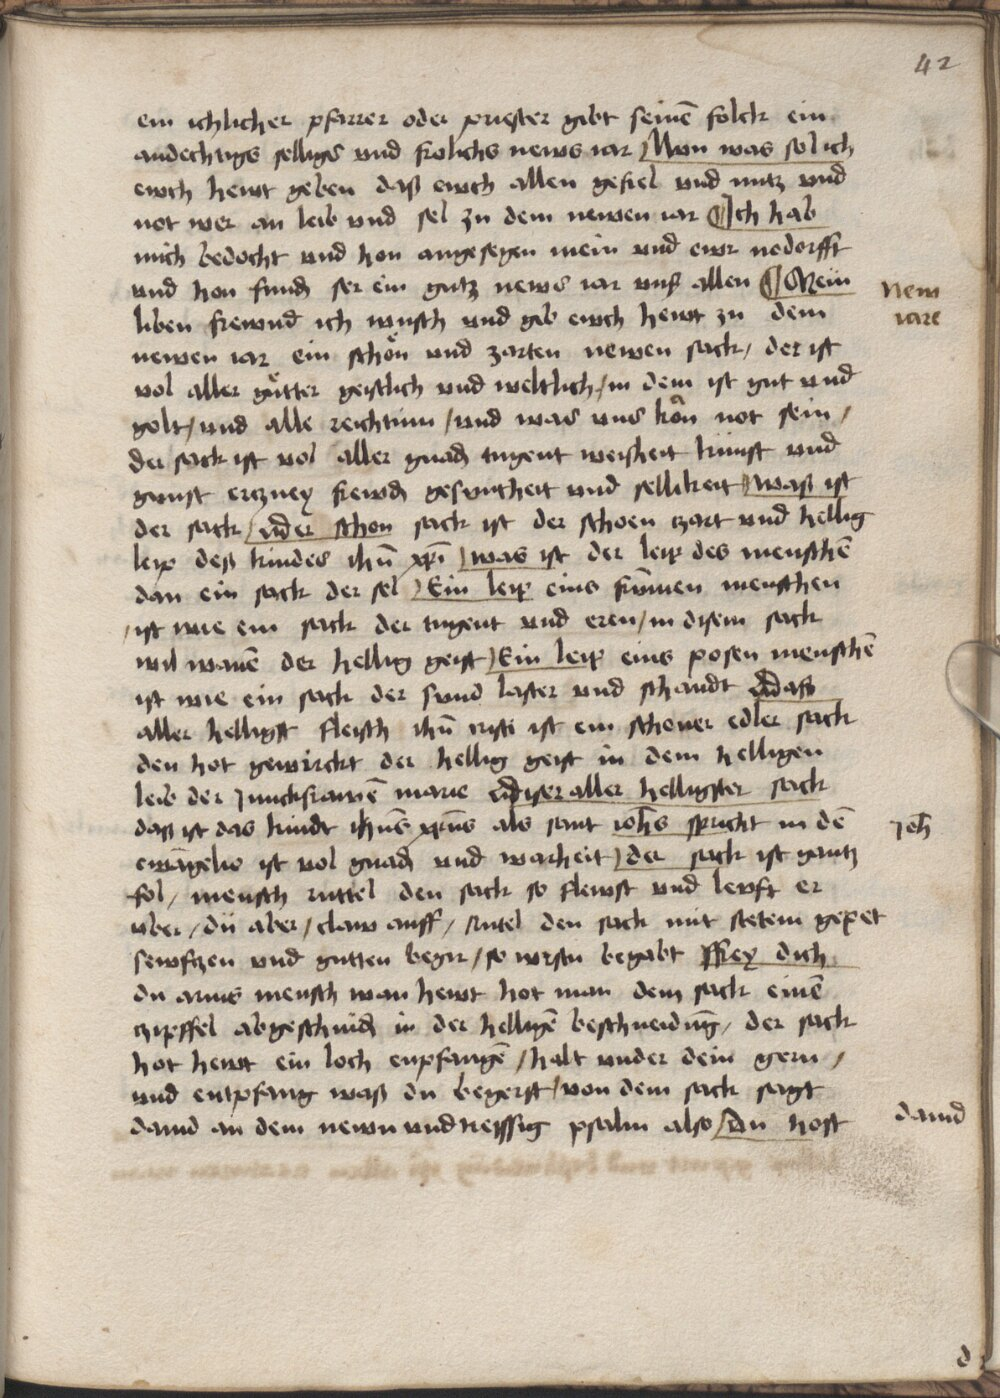 42
ein ichlicher pfarrer oder priester gibt seinē folck ein
andechtigs selligs vnd frolichs news iar Nvn was sol ich
ewch hewt geben daß ewch allen gefiel vnd nutz vnd
not wer an leib vnd sel zu dem newen iar ¶ Ich hab
mich bedocht vnd hon angesegen mein vnd ewr nedorfft
vnd hon fundē ser ein gutz news iar vnß allen ¶ Mein
New
iare
liben frewnd ich wnsch vnd gib ewch hewt zu dem
newen iar ein schön vnd zarten newen sack / der ist
vol aller gůtter geistlich vnd weltlich / in dem ist gut vnd
golt / vnd alle reichtum / vnd was vns kon not sein /
der sack ist vol aller gnadē tugent weisheit kunst vnd
gunst erczney frewdē gesuntheit vnd sellikeit waß ist
der sack / Der schon sack ist der schoen czart vnd hellig
leip deß kindes ihū xp̄i was ist der leip des menschē
dan ein sack der sel Ein leip eins frūmen menschen
ist wie ein sack der tugent vnd eren / in disem sack
wil wanē der hellig geist Ein leip eins posen menschē
ist wie ein sack der sund laster vnd schandt Daß
aller helligst fleisch ihū cristi ist ein schener edler sack
den hot gewirckt der hellig geist in dem helligen
leib der junckfrawē marie Diser aller helligster sack
daß ist das kindt ihūs xpūs als sant ioh̄s spricht in dē
Joh̄
ewāgelio ist vol gnadē vnd warheit der sack ist gantz
fol / mensch ruttel den sack so flewst vnd lewft er
vber / du aber / claw auff / rutel den sack mit stetem gepet
sewftzen vnd gutten begir / so wirstu begabt ffrey dich
du arms mensch wan hewt hot man dem sack einē
czipffel abgeschnidē in der helligē beschneidūg / der sack
hot hewt ein loch enpfangē / halt vnder dein gern /
vnd entpfang waß du begerst / von dem sack sagt
dauid an dem newn vnd neissig psalm also Du host
dauid